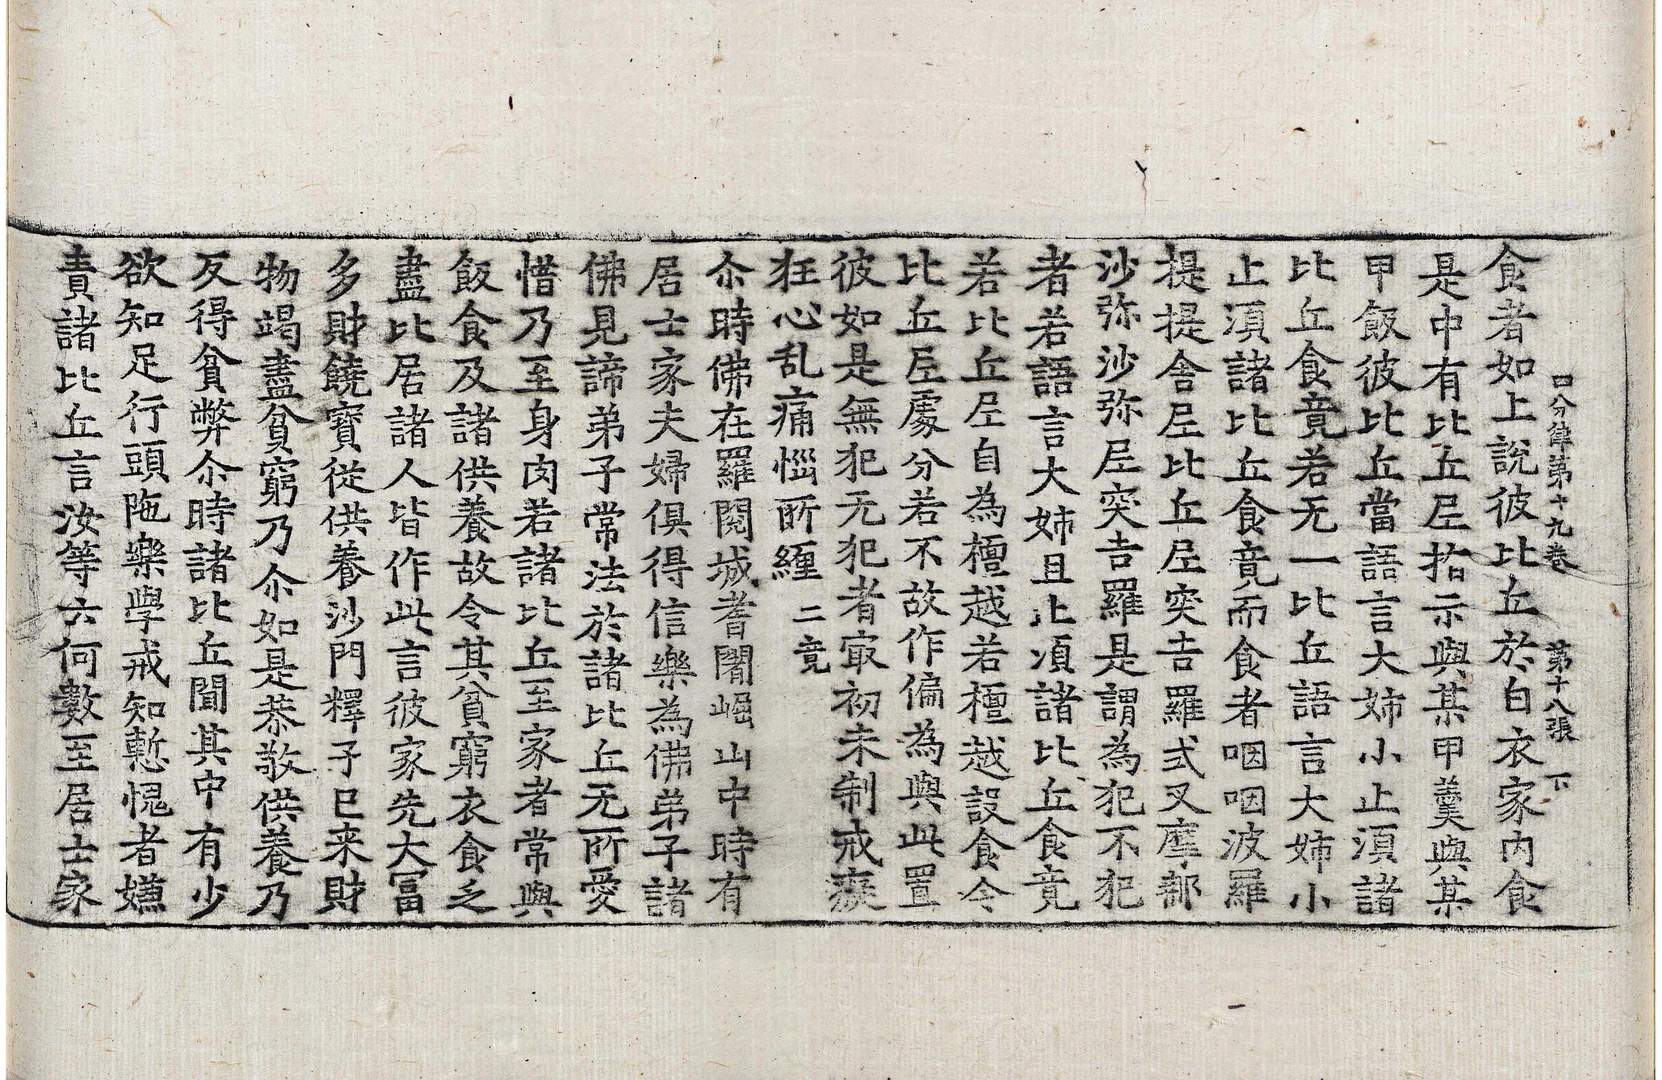 四分律第十九卷　第十八張　下
食者如上說彼比丘於白衣家内食
是中有比丘𡰱指示與某甲羹與某
甲飯彼比丘當語言大姉小止湏諸
比丘食竟若无一比丘語言大姉小
止湏諸比丘食竟而食者咽咽波羅
提提舍𡰱比丘𡰱突吉羅式叉摩那
沙弥沙弥𡰱突吉羅是謂為犯不犯
者若語言大姉且止湏諸比丘食竟
若比丘𡰱自為檀越若檀越設食令
比丘𡰱處分若不故作偏為與此置
彼如是無犯无犯者㝡初未制戒癡
狂心乱痛惱所纏 二竟
尒時佛在羅閱城耆闍崛山中時有
居士家夫婦俱得信樂為佛弟子諸
佛見諦弟子常法於諸比丘无所愛
惜乃至身肉若諸比丘至家者常與
飯食及諸供養故令其貧窮衣食乏
盡比居諸人皆作此言彼家先大冨
多財饒寶從供養沙門釋子已来財
物竭盡貧窮乃尒如是恭敬供養乃
反得貧弊尒時諸比丘聞其中有少
欲知足行頭陁樂學戒知慙愧者嫌
責諸比丘言汝等云何數至居士家